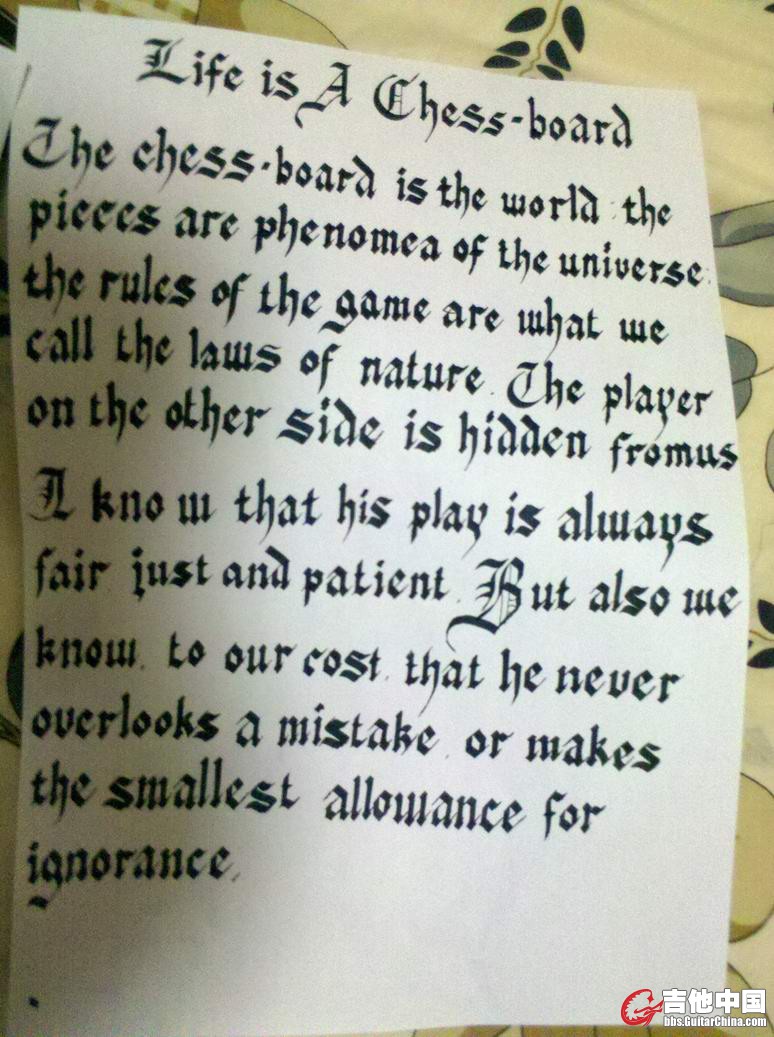 Life is A Chess-board
The chess-board is the world: the
pieces are phenomea of the universe:
the rules of the game are what we
call the laws of nature. The player
on the other side is hidden fromus
I know that his play is always
fair, just and patient. But also we
know, to our cost, that he never
overlooks a mistake, or makes
the smallest allowance for
ignorance.
吉他中国
bbs.GuitarChina.com